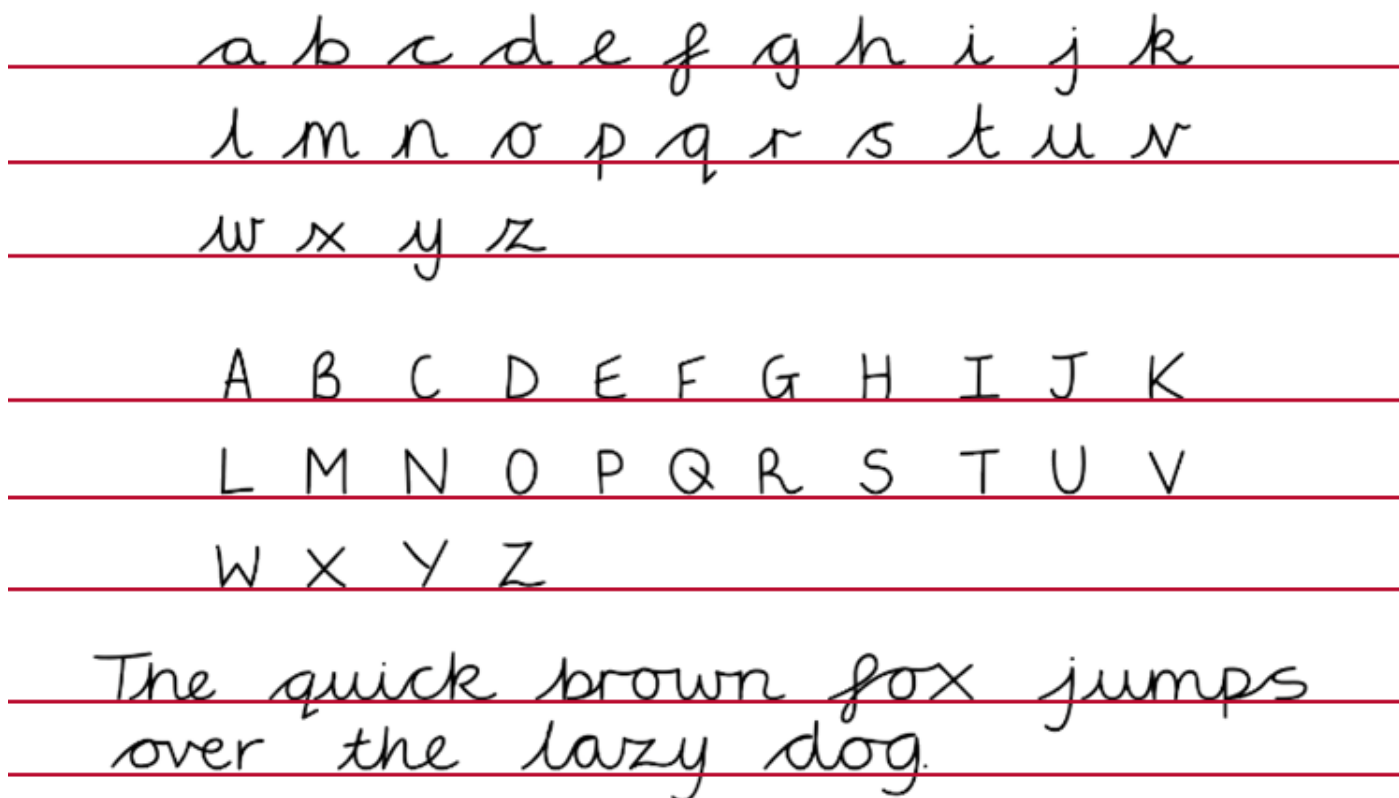 a b c d e f g h i j k
l m n o p q r s t u v
w x y z
A B C D E F G H I J K
L M N O P Q R S T U V
W X Y Z
The quick brown fox jumps
over the lazy dog.